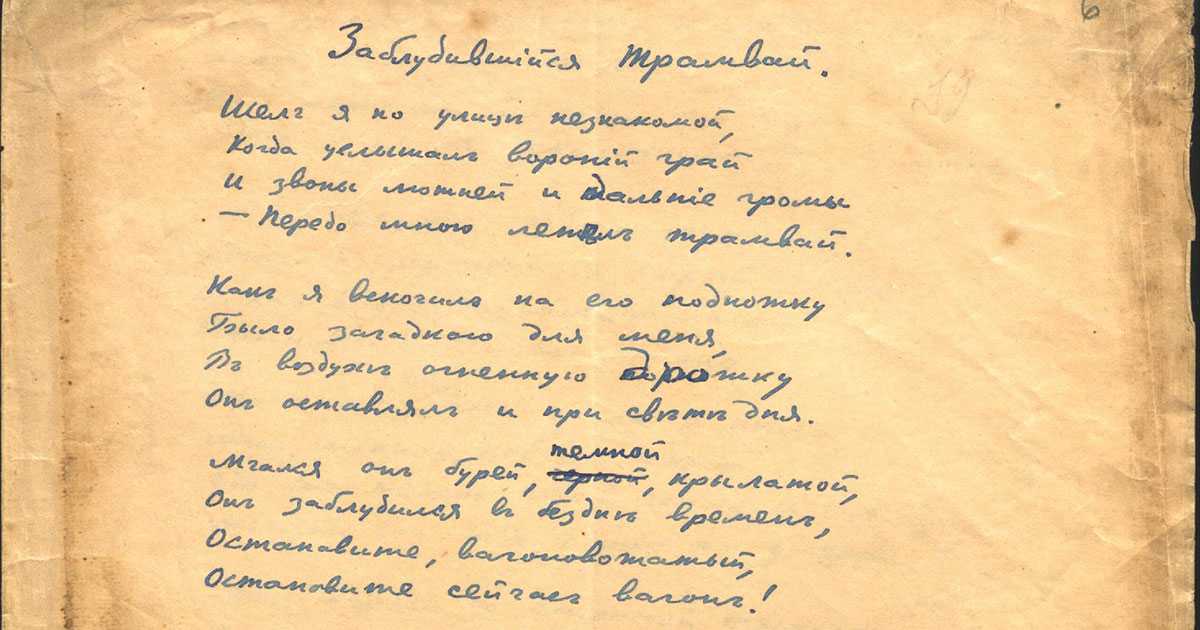 6
Заблудившiйся трамвай.
Шелъ я по улицѣ незнакомой,
Когда услышалъ воронiй грай
И звоны лютней и дальнiе громы
— Передо мною летѣлъ трамвай.
Какъ я вскочилъ на его подножку
Было загадкою для меня,
Въ воздухѣ огненную дорожку
Онъ оставлялъ и при свѣтѣ дня.
темной
Мчался онъ бурей, черной, крылатой,
Онъ заблудился въ безднѣ временъ,
Остановите, вагоновожатый,
Остановите сейчасъ вагонъ!